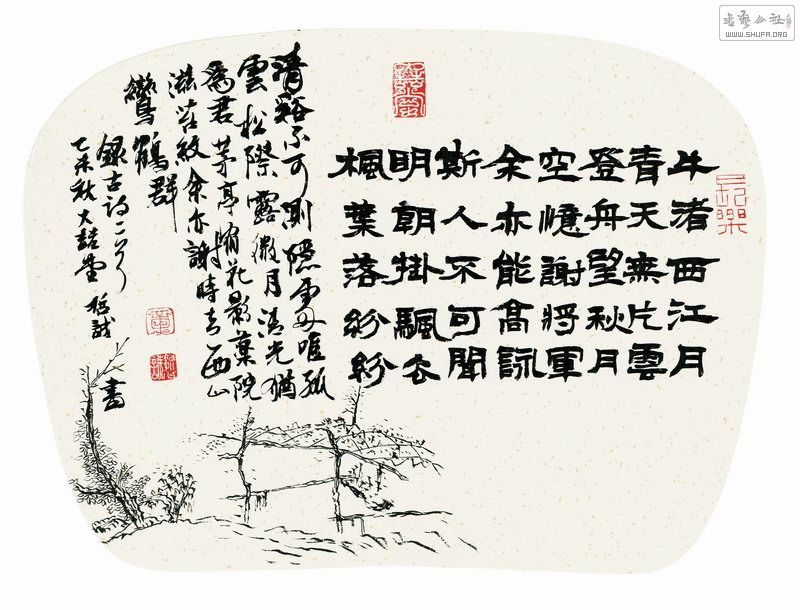 牛渚西江月
青天無片雲
登舟望秋月
空憶謝將軍
余亦能高詠
斯人不可聞
明朝掛颿去
楓葉落紛紛
清谿不可測隱處唯孤
雲松際露微月清光猶
為君茅亭宿花影藥院
滋苔紋余亦謝時去西山
鸞鶴群
錄古詩二首
乙未秋大喆堂哲誠書
書藝公社
WWW.SHUFA.ORG